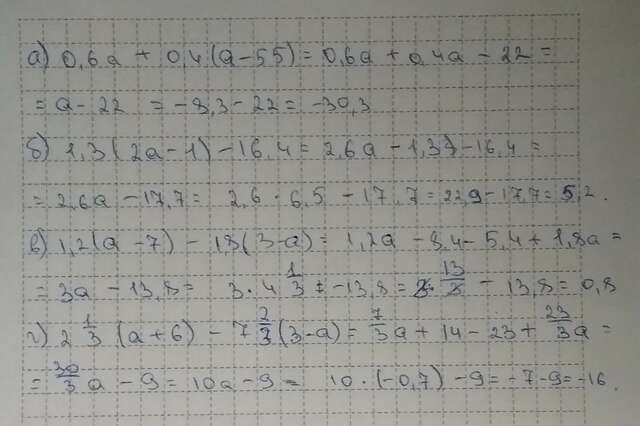 а) 0,6a + 0,4(a-55) = 0,6a + 0,4a - 22 =
= a - 22 = -8,3 - 22 = -30,3
б) 1,3(2a-1) - 16,4 = 2,6a - 1,3 - 16,4 =
= 2,6a - 17,7 = 2,6 · 6,5 - 17,7 = 22,9 - 17,7 = 5,2.
в) 1,2(a-7) - 1,8(3-a) = 1,2a - 8,4 - 5,4 + 1,8a =
= 3a - 13,8 = 3 · 4 1/3 - 13,8 = 3 · 13/3 - 13,8 = 0,8
г) 2 1/3 (a+6) - 7 2/3 (3-a) = 7/3 a + 14 - 23 + 23/3 a =
= 30/3 a - 9 = 10a - 9 = 10 · (-0,7) - 9 = -7-9 = -16.